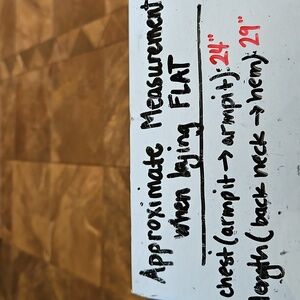 Approximate Measurement
when lying FLAT
chest (armpit → armpit): 24"
length (back neck → hem): 29"